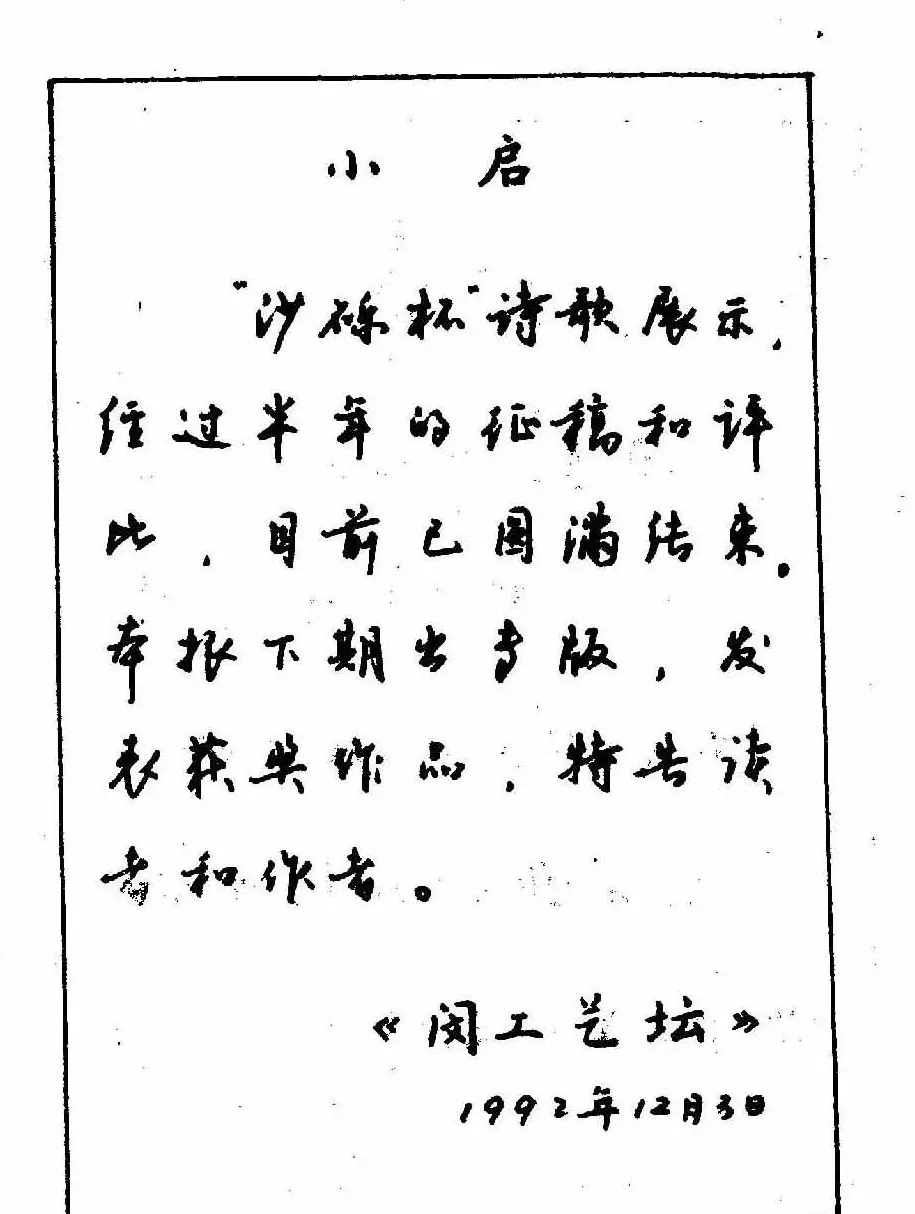 小 启
“沙砾杯”诗歌展示,
经过半年的征稿和评
比,目前已圆满结束。
本报下期出专版,发
表获奖作品,特告读
者和作者。
《闵工艺坛》
1992年12月3日